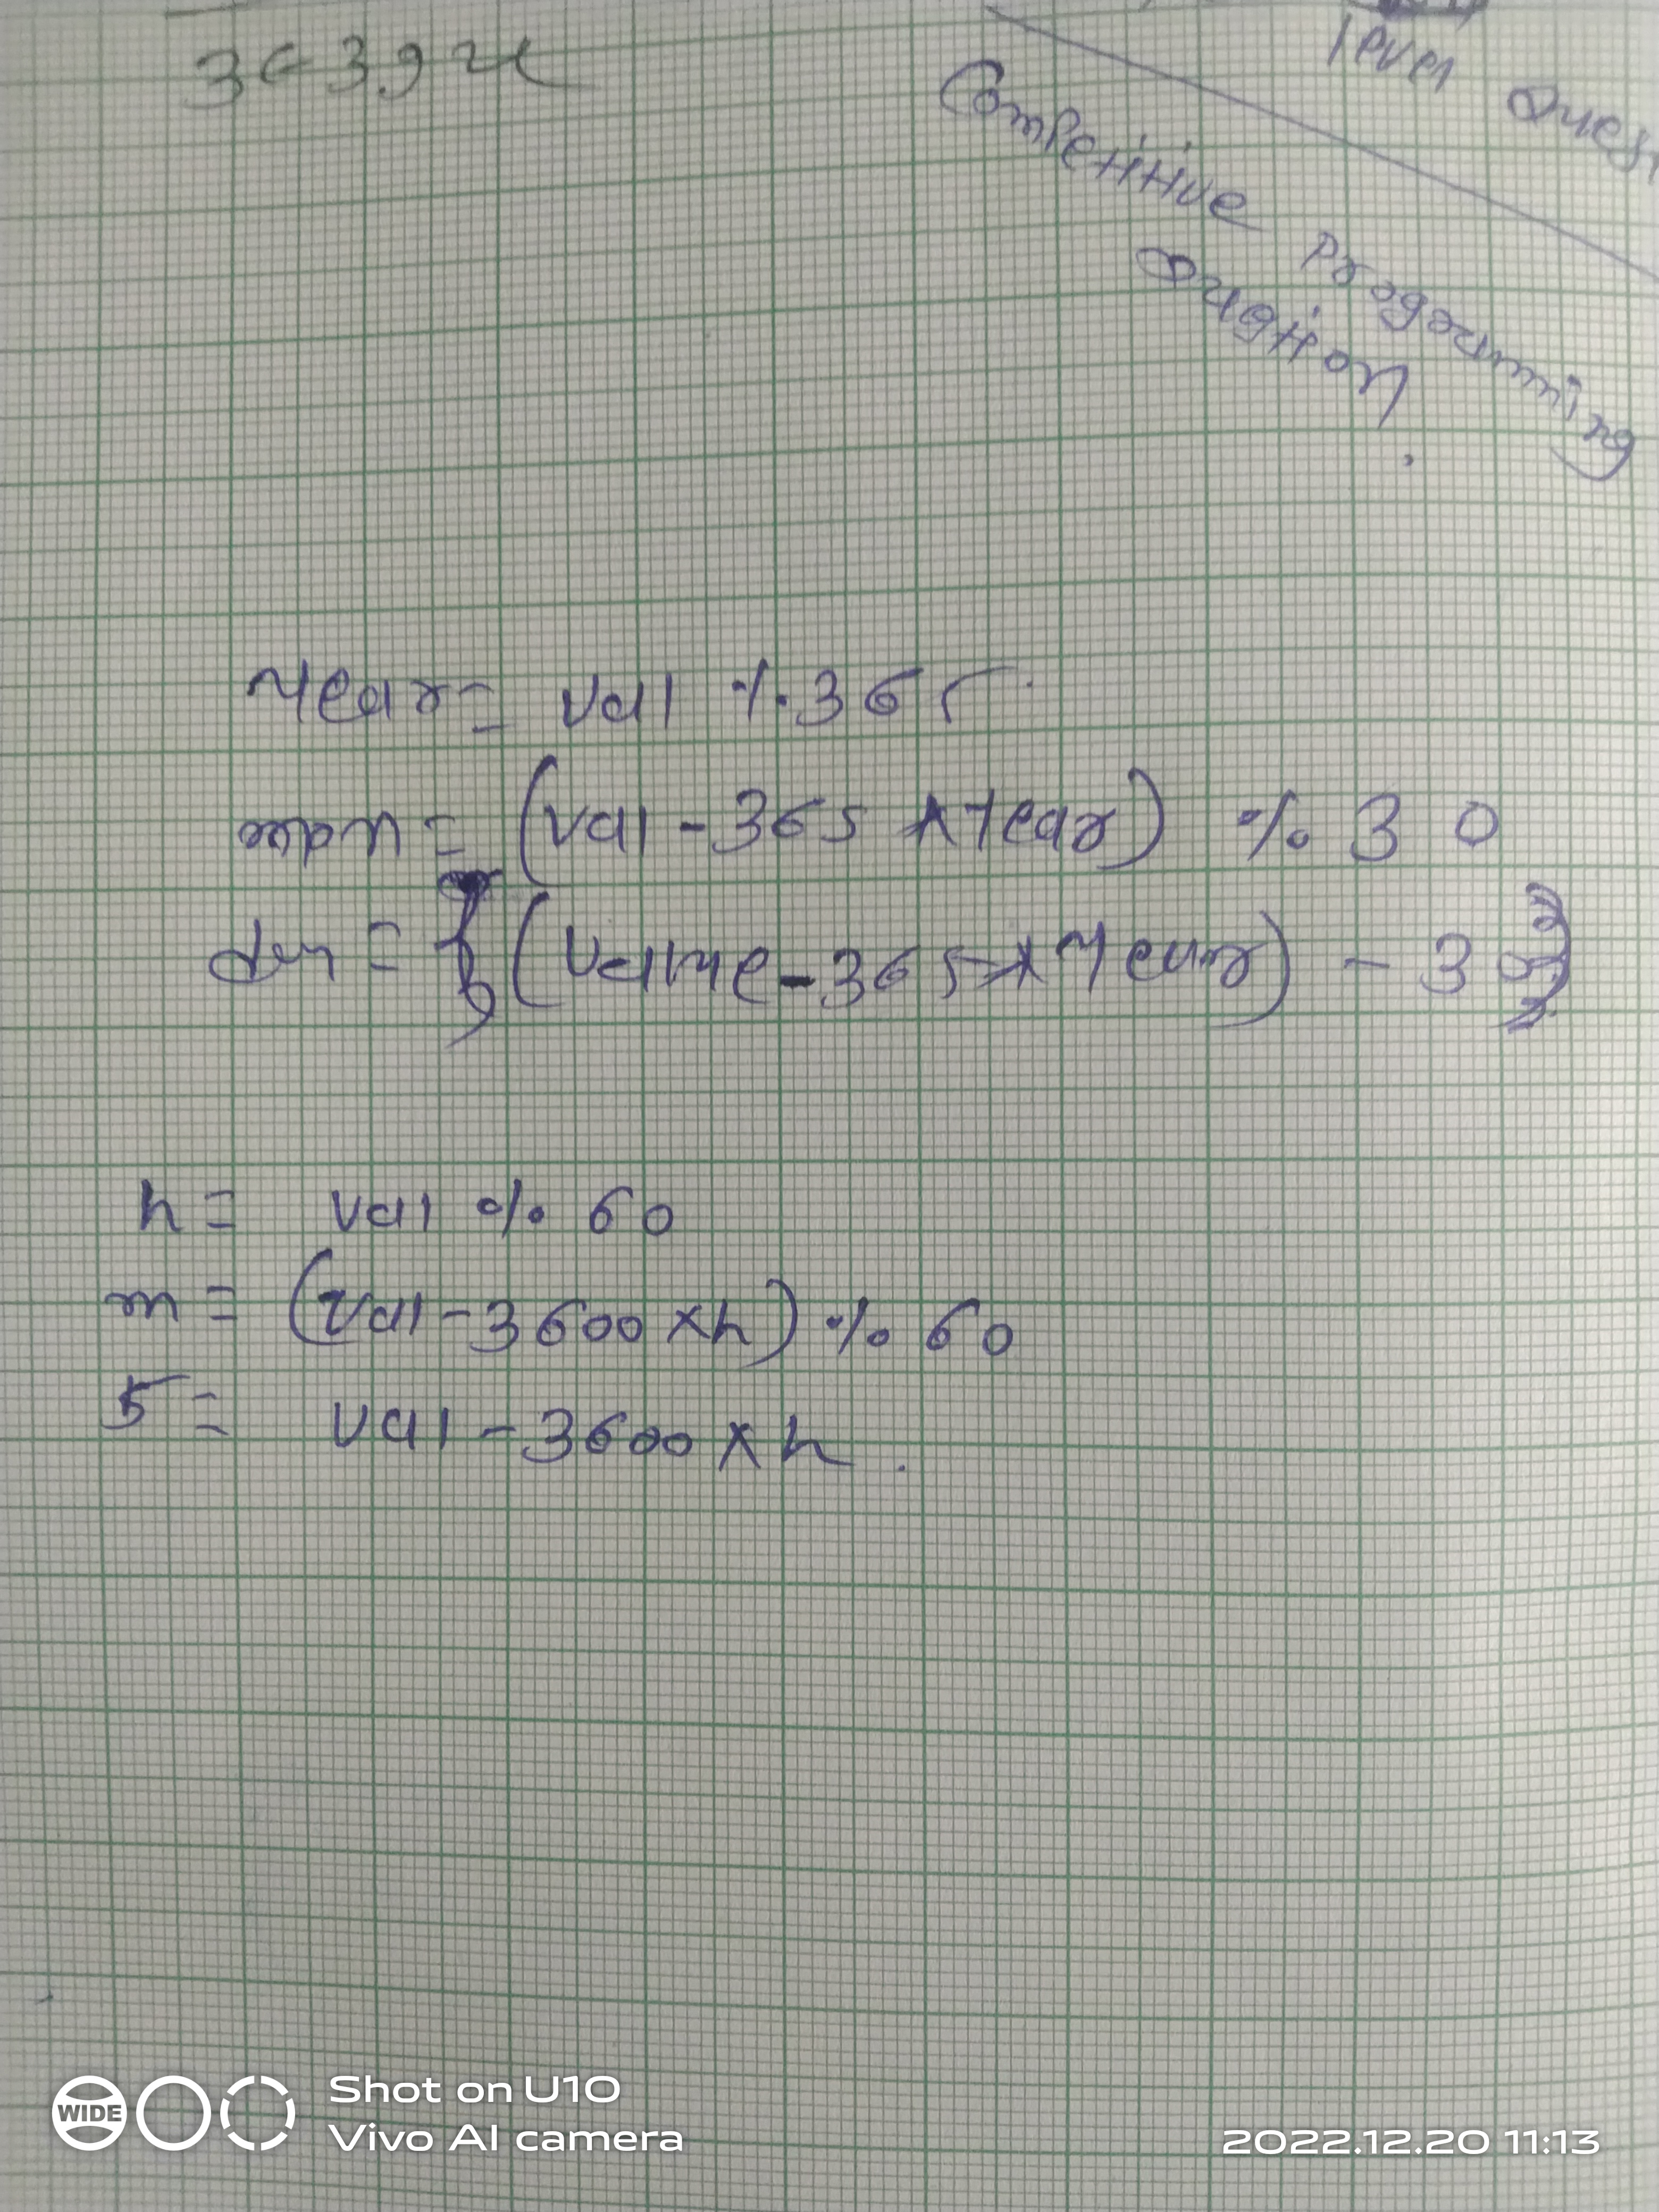 level Ques
Competitive Programming
Question.
Year = val % 365
= (val - 365 * Year) % 30
= { (Value - 365 * Year) - 30 }
h = val % 60
m = (val - 3600 × h) % 60
5 = val - 3600 × h.
WIDE
Shot on U10
Vivo AI camera
2022.12.20 11:13